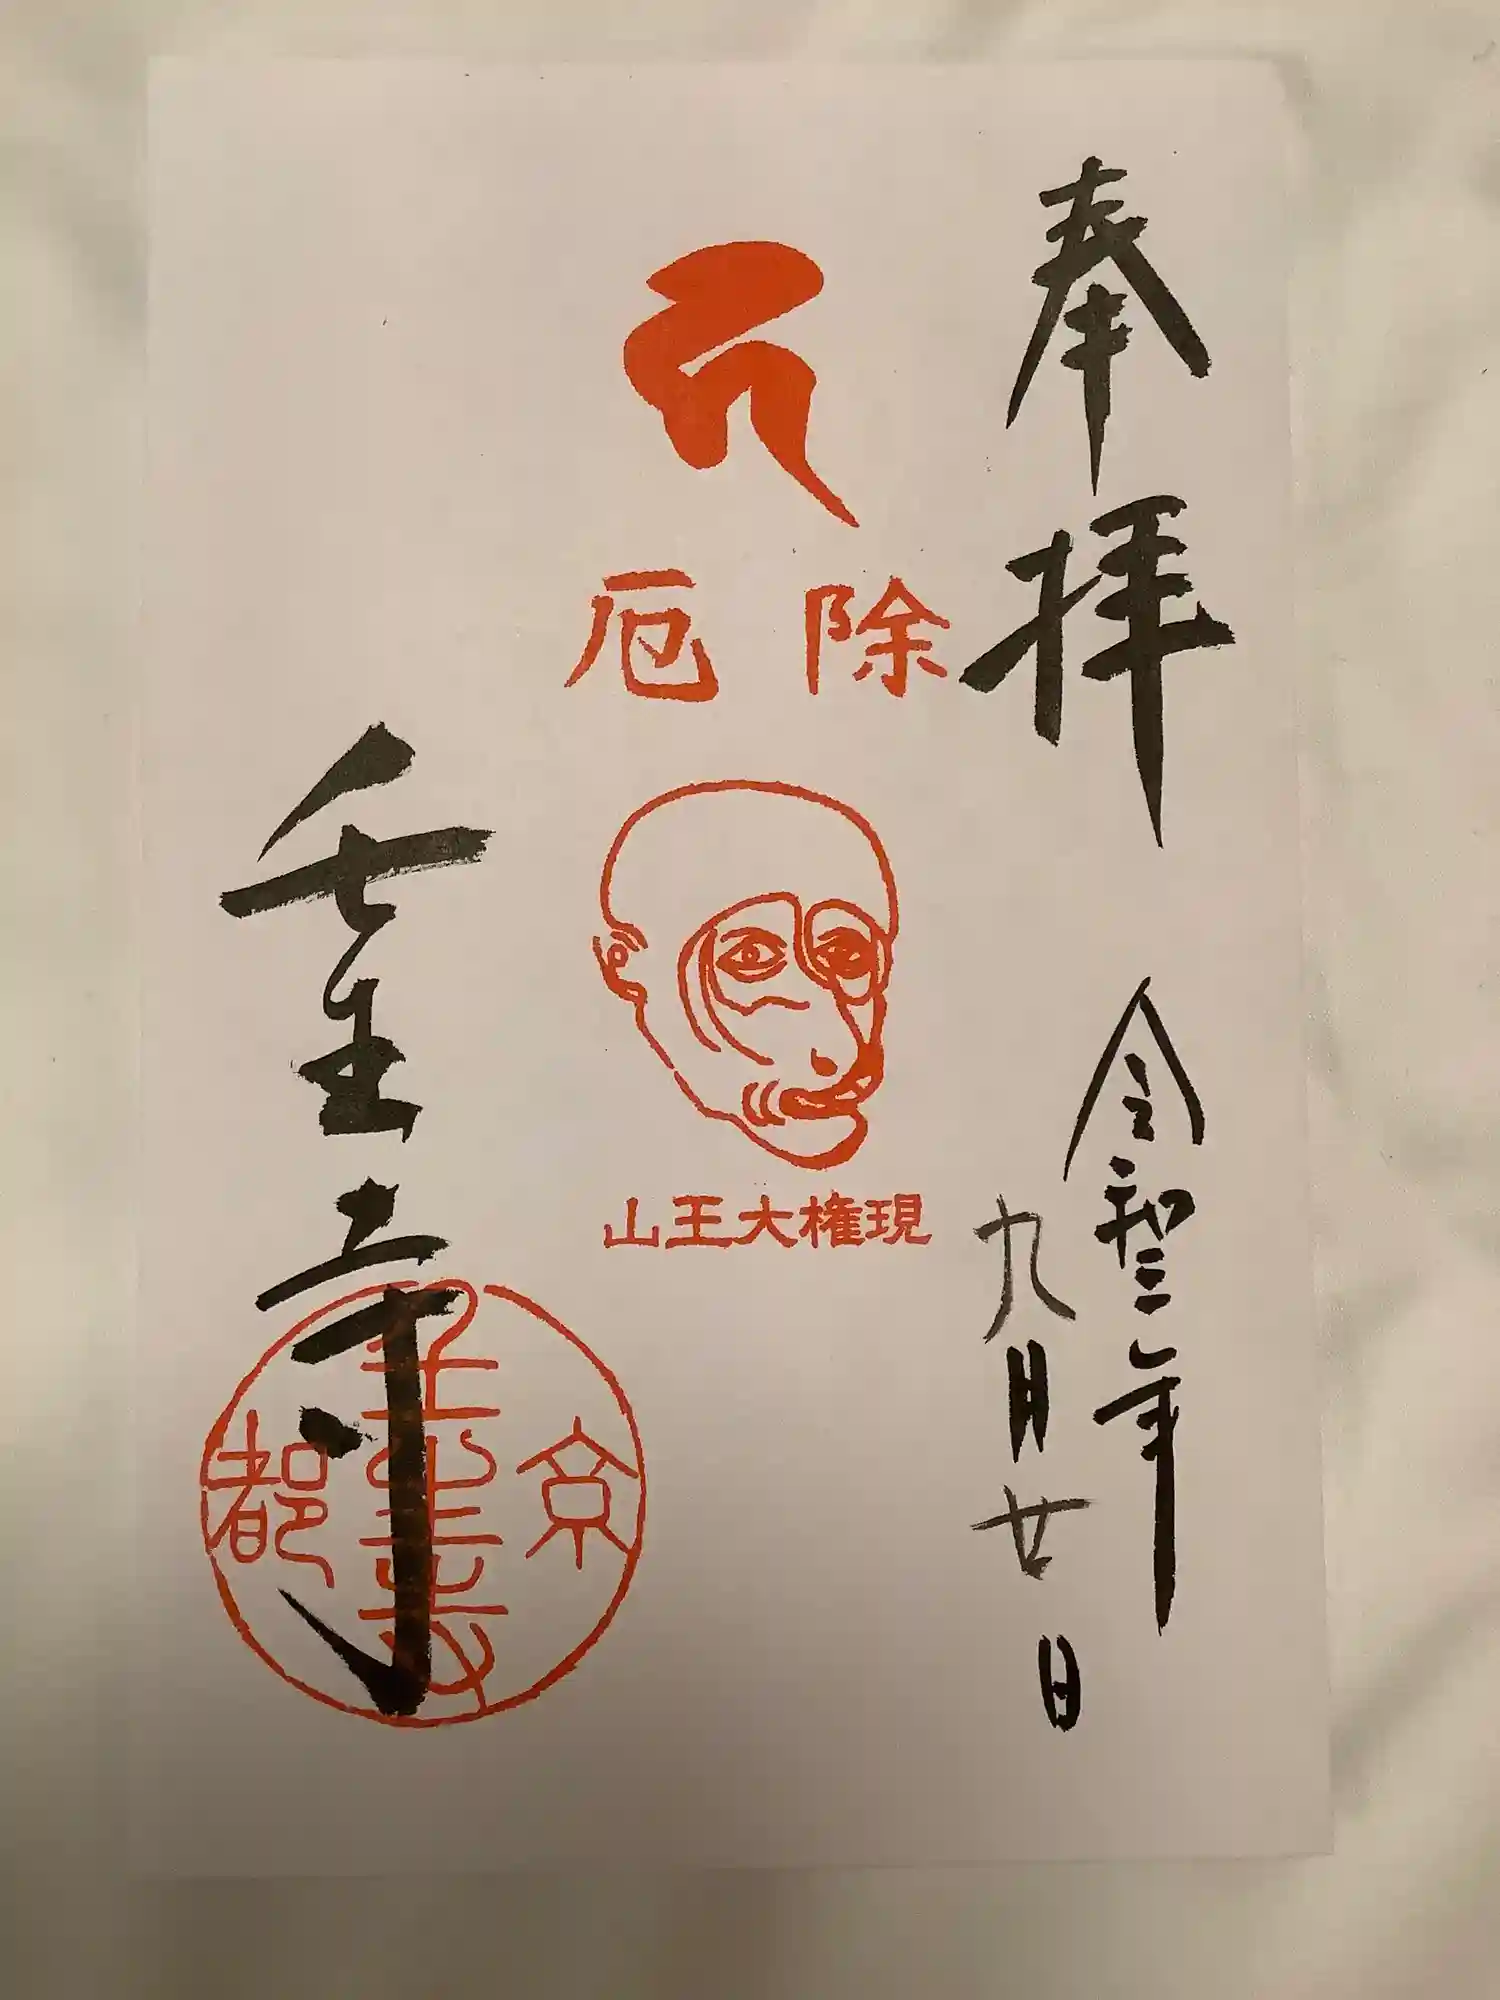 奉拝
令和二年
九月廿日
厄除
山王大権現
壬生寺
京都
壬生寺